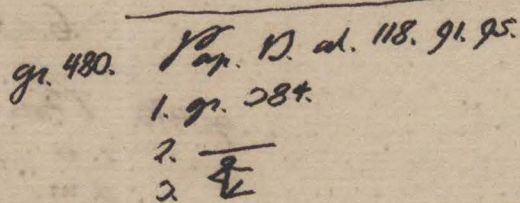 gr. 480. Pap. D. ad. 118. 91. 95.
1. gr. 284.
2.
3.